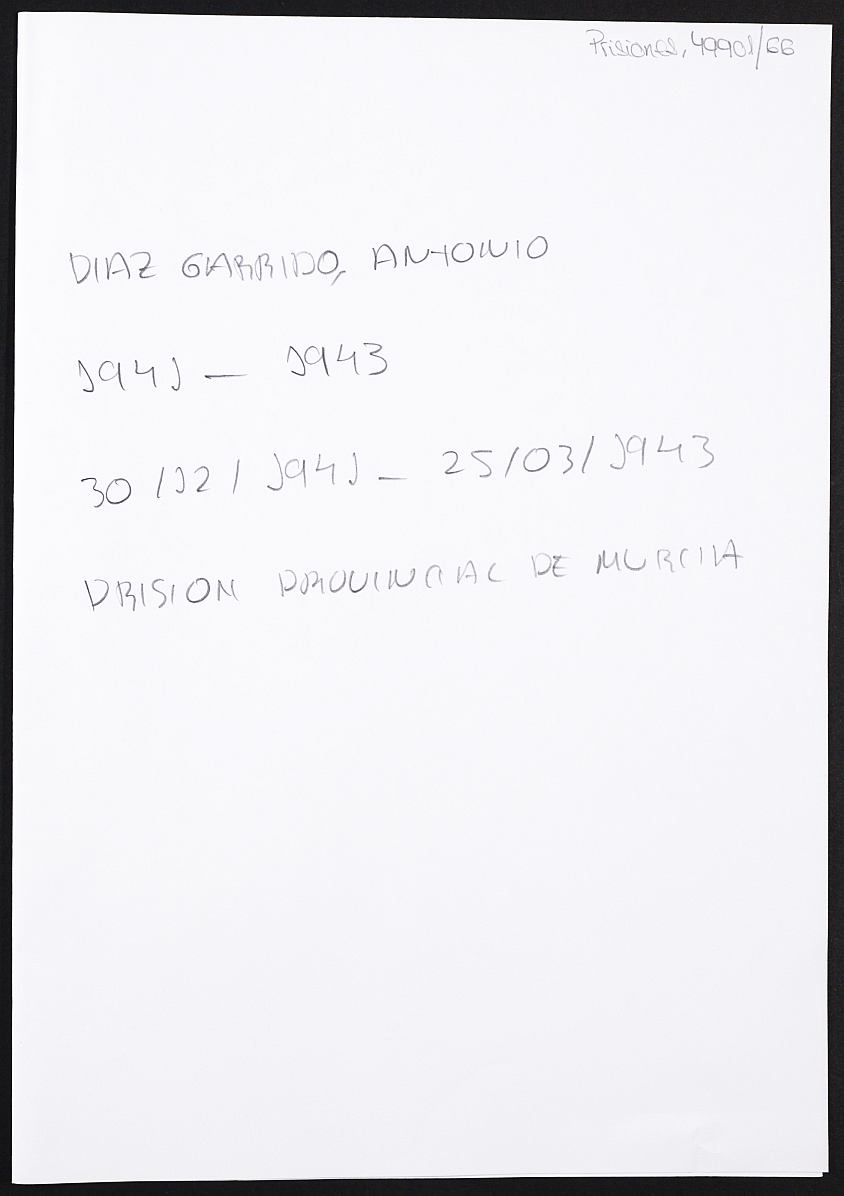 Prisiones, 49901/66
DIAZ GARRIDO, ANTONIO
1941 — 1943
30/12/1941 — 25/03/1943
PRISION PROVINCIAL DE MURCIA